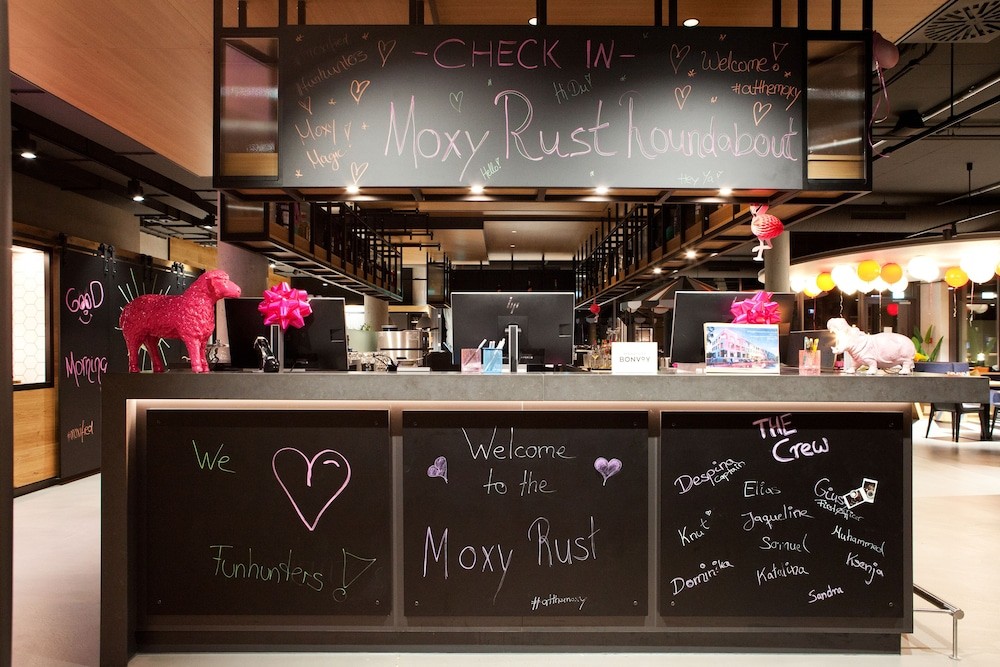 #moxified
#funhunters
Moxy
Magic!
- CHECK IN -
Hi Du!
Welcome!
#atthemoxy
Moxy Rust Roundabout
Hello!
Hey Ya!
GooD
Morning
#moxified
hp
BONVOY
We
Funhunters!
Welcome
to the
Moxy Rust
#atthemoxy
THE
Crew
Despina
Captain
Elias
Knut
Jaqueline
Samuel
Muhammad
Dominika
Katalina
Ksenja
Sandra